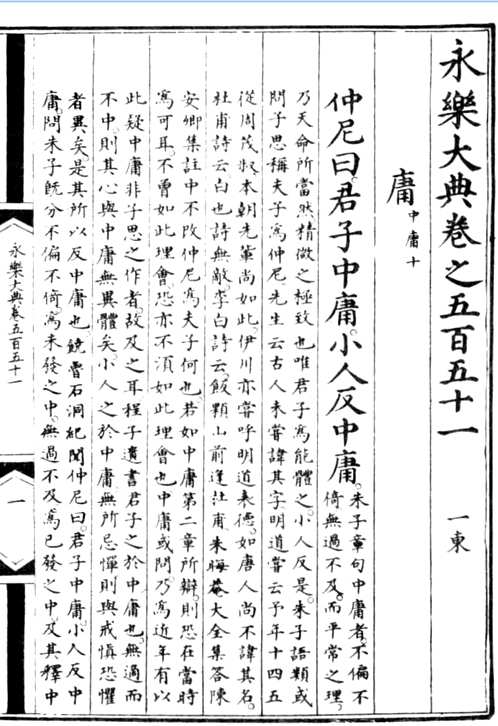 永樂大典卷之五百五十一
一東
庸
中庸十
仲尼曰君子中庸小人反中庸
朱子章句中庸者不偏不
倚無過不及而平常之理
乃天命所當然精微之極致也唯君子爲能體之小人反是朱子語類或
問子思稱夫子爲仲尼先生云古人未嘗諱其字明道嘗云予年十四五
從周茂叔本朝先輩尚如此伊川亦嘗呼明道表德如唐人尚不諱其名
杜甫詩云白也詩無敵李白詩云飯顆山前逢杜甫朱晦菴大全集答陳
安卿集註中不改仲尼爲夫子何也若如中庸第二章所辯則恐在當時
爲可耳不曾如此理會恐亦不須如此理會也中庸或問乃爲近年有以
此疑中庸非子思之作者故及之耳程子遺書君子之於中庸也無過而
不中則其心與中庸無異體矣小人之於中庸無所忌憚則與戒慎恐懼
者異矣是其所以反中庸也饒雙石洞紀聞仲尼曰君子中庸小人反中
庸問朱子既分不偏不倚爲未發之中無過不及爲已發之中及其釋中
永樂大典卷五百五十一
一